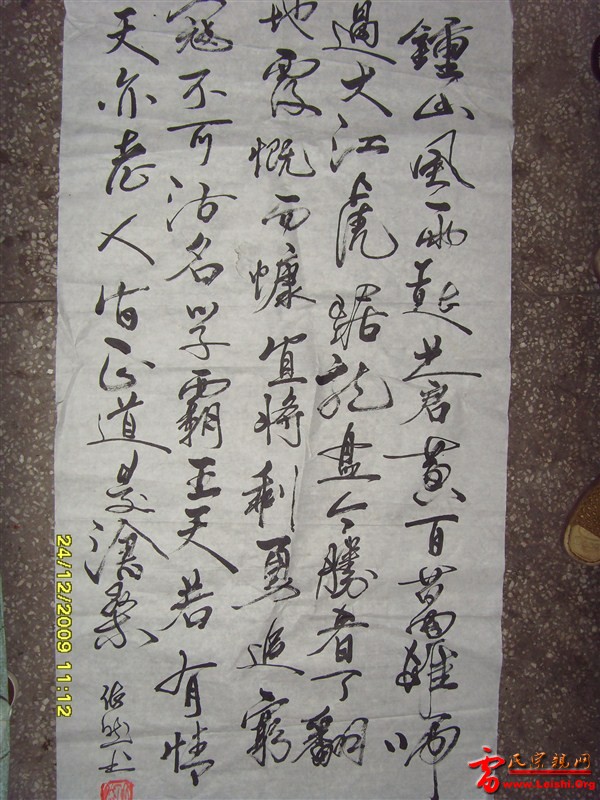 鍾山風雨起蒼黄百萬雄师
過大江虎踞龙盘今勝昔天翻
地覆慨而慷宜将剩勇追窮
寇不可沽名学霸王天若有情
天亦老人间正道是滄桑
24/12/2009 11:12
雷氏宗親网
www.Leishi.Org